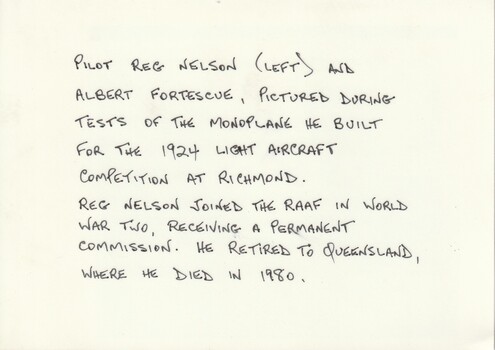 PILOT REG NELSON (LEFT) AND
ALBERT FORTESCUE, PICTURED DURING
TESTS OF THE MONOPLANE HE BUILT
FOR THE 1924 LIGHT AIRCRAFT
COMPETITION AT RICHMOND.
REG NELSON JOINED THE RAAF IN WORLD
WAR TWO, RECEIVING A PERMANENT
COMMISSION. HE RETIRED TO QUEENSLAND,
WHERE HE DIED IN 1980.